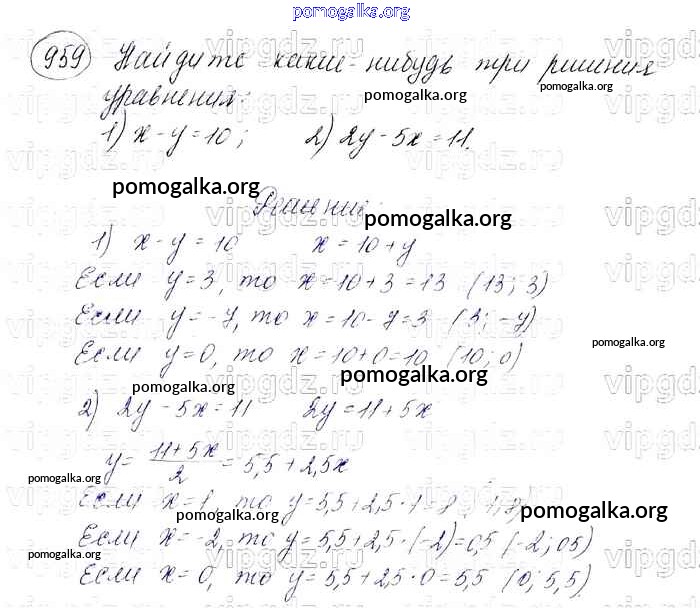 pomogalka.org
959 Найдите какие-нибудь три решения
pomogalka.org pomogalka.org
уравнения:
1) x - y = 10; 2) 2y - 5x = 11.
pomogalka.org
Решение:
pomogalka.org
1) x - y = 10 x = 10 + y
Если y = 3, то x = 10 + 3 = 13 (13; 3)
Если y = -7, то x = 10 - 7 = 3 (3; -7)
pomogalka.org
Если y = 0, то x = 10 + 0 = 10 (10; 0)
pomogalka.org
pomogalka.org
2) 2y - 5x = 11 2y = 11 + 5x
y = (11 + 5x)/2 = 5,5 + 2,5x
pomogalka.org
Если x = 1, то y = 5,5 + 2,5 · 1 = 8 1; 8)
pomogalka.org pomogalka.org
Если x = -2, то y = 5,5 + 2,5 · (-2) = 0,5 (-2; 05)
pomogalka.org
Если x = 0, то y = 5,5 + 2,5 · 0 = 5,5 (0; 5,5)
vipgdz.ru